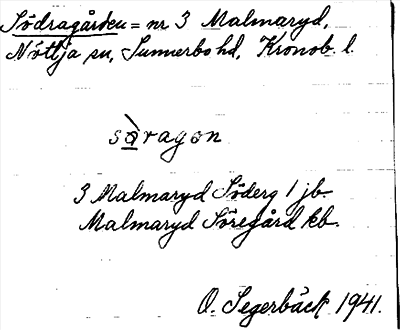 Södragården = nr 3 Malmaryd,
Nöttja sn, Sunnerbo hd, Kronob. l.
sò̱ragon
3 Malmaryd Söderg 1 jb.
Malmaryd Söregård kb.
O. Segerbäck 1941.